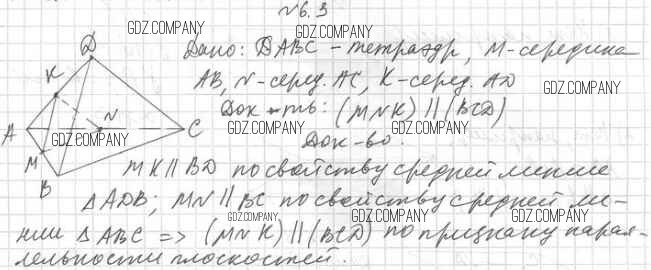 №6.3
Дано: DABC - тетраэдр, M-середина
AB, N-серед. AC, K-серед. AD
Док-ть: (MNK) || (BCD)
Док-во.
MK || BD по свойству средней линии
△ADB; MN || BC по свойству средней ли-
нии △ABC => (MNK) || (BCD) по признаку парал-
лельности плоскостей.
D
K
N
A
C
M
B
GDZ.COMPANY
GDZ.COMPANY
GDZ.COMPANY
GDZ.COMPANY
GDZ.COMPANY
GDZ.COMPANY
GDZ.COMPANY
GDZ.COMPANY
GDZ.COMPANY
GDZ.COMPANY
GDZ.COMPANY
GDZ.COMPANY